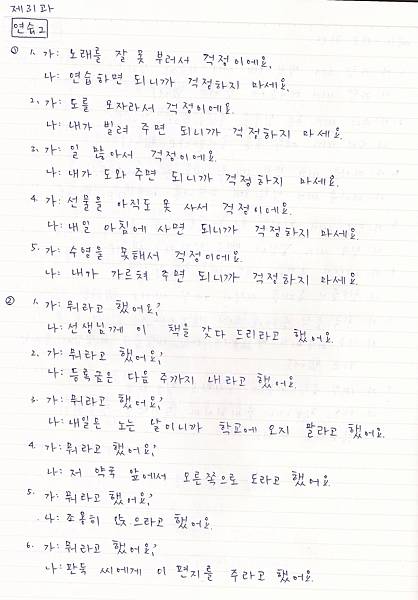 제31과
연습2
① 1. 가: 노래를 잘 못 불러서 걱정이에요.
나: 연습하면 되니까 걱정하지 마세요.
2. 가: 돈를 모자라서 걱정이에요.
나: 내가 빌려 주면 되니까 걱정하지 마세요.
3. 가: 일 많아서 걱정이에요.
나: 내가 도와주면 되니까 걱정하지 마세요.
4. 가: 선물을 아직도 못 사서 걱정이에요.
나: 내일 아침에 사면 되니까 걱정하지 마세요.
5. 가: 수영을 못해서 걱정이에요.
나: 내가 가르쳐 주면 되니까 걱정하지 마세요.
② 1. 가: 뭐라고 했어요?
나: 선생님께 이 책을 갖다 드리라고 했어요.
2. 가: 뭐라고 했어요?
나: 등록금은 다음 주까지 내라고 했어요.
3. 가: 뭐라고 했어요?
나: 내일은 노는 날이니까 학교에 오지 말라고 했어요.
4. 가: 뭐라고 했어요?
나: 저 약국 앞에서 오른쪽으로 도라고 했어요.
5. 가: 뭐라고 했어요?
나: 조용히 앉으라고 했어요.
6. 가: 뭐라고 했어요?
나: 완둑 씨에게 이 편지를 주라고 했어요.